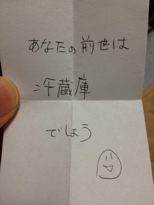 あなたの前世は
冷蔵庫
でしょう